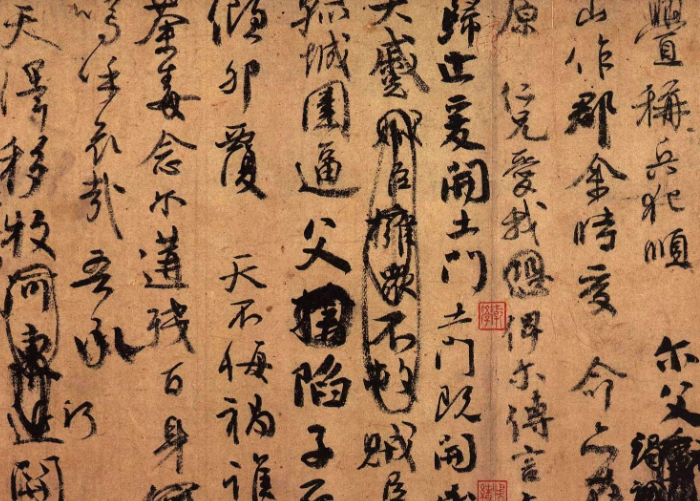 舋稱兵犯順 尔父竭誠
山作郡余時受 命亦在
原 仁兄愛我俾尔傳言
歸止爰開土門土門既開凶
大蹙賊臣擁衆不救賊臣
孤城圍逼父陷子死
傾卵覆 天不悔禍誰
荼毒念尔遘殘百身
嗚呼哀哉吾承
天澤移牧河東近關